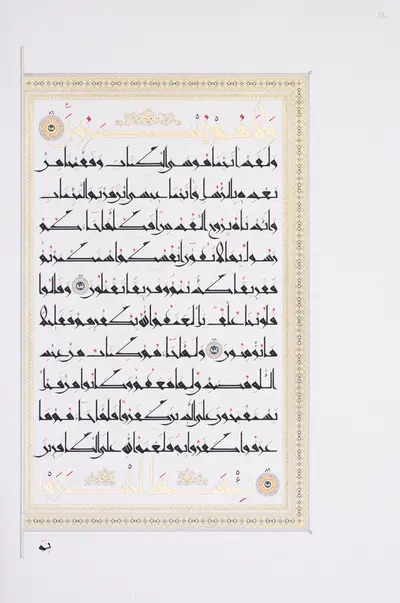 ولا هم ينصرون ٨٦
ولقد اتينا موسى الكتاب وقفينا من
بعده بالرسل واتينا عيسى ابن مريم البينات
وايدناه بروح القدس افكلما جاءكم
رسول بما لا تهوى انفسكم استكبرتم
ففريقا كذبتم وفريقا تقتلون وقالوا
قلوبنا غلف بل لعنهم الله بكفرهم فقليلا
ما يؤمنون ولما جاءهم كتاب من عند
الله مصدق لما معهم وكانوا من قبل
يستفتحون على الذين كفروا فلما جاءهم ما
عرفوا كفروا به فلعنة الله على الكافرين
٨٩ بئسما اشتروا
به